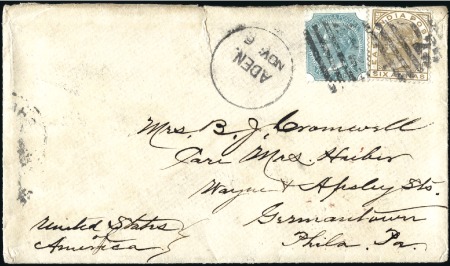 ADEN.
NOV. 6
INDIA POS
SIX ANNAS
Mrs. B. J. Cromwell
Care Mrs. Haiber
Wayne & Apsley Sts.
Germantown
Phila. Pa.
United States
of
America